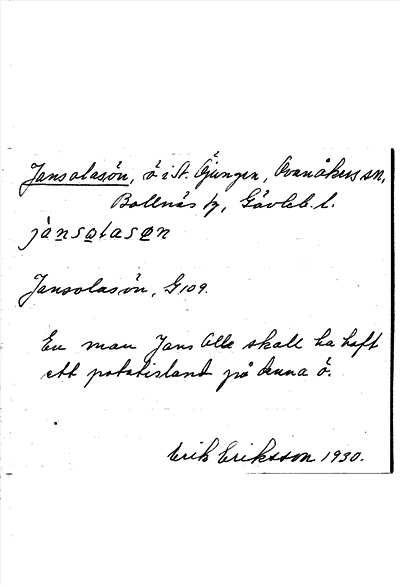 Jansolasön, ö i St. Öjungen, Ovanåkers sn,
Bollnäs tg, Gävleb. l.
jànsolasøn
Jansolasön, G 109.
En man Jans Olle skall ha haft
ett potatisland på denna ö.
Erik Eriksson 1930.